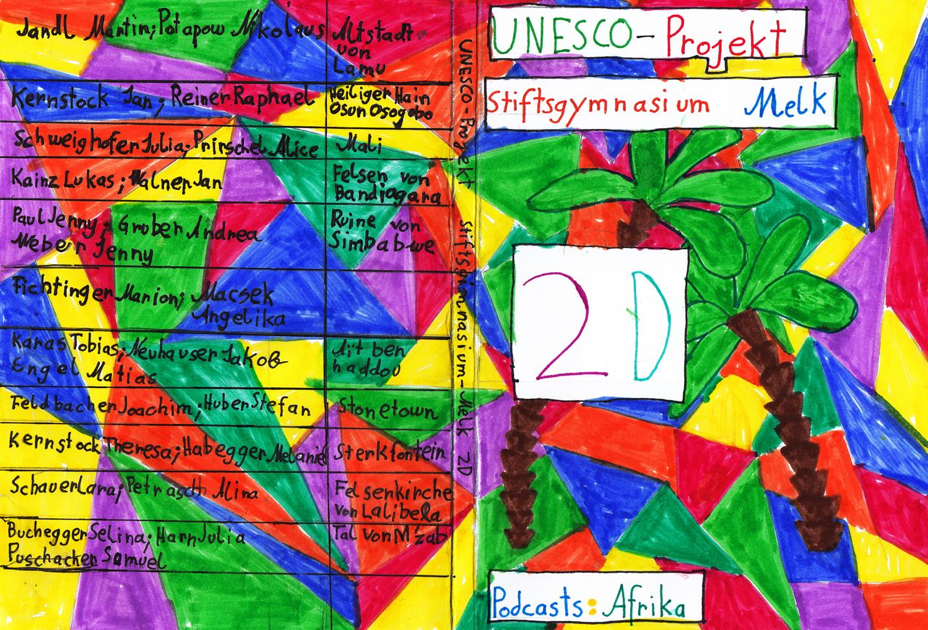 Jandl Martin; Potapow Nikolaus
Altstadt
von
Lamu
Kernstock Jan; Reiner Raphael
Heiliger Hain
Osun Osogobo
Schweighofer Julia; Prirschel Alice
Mali
Kainz Lukas; Walner Jan
Felsen von
Bandiagara
Paul Jenny; Gruber Andrea
Weber Jenny
Ruine von
Simbabwe
Fichtinger Marion; Macsek
Angelika
Karas Tobias; Neuhauser Jakob
Engel Matias
Ait ben
haddou
Feldbacher Joachim; Huber Stefan
Stonetown
Kernstock Theresa; Habegger Melanie
Sterkfontein
Schauer Lara; Petrasch Alina
Felsenkirche
von Lalibela
Buchegger Selina; Harn Julia
Puschacher Samuel
Tal von M'zab
UNESCO-Projekt Stiftsgymnasium-Melk 2D
UNESCO-Projekt
Stiftsgymnasium Melk
2D
Podcasts: Afrika